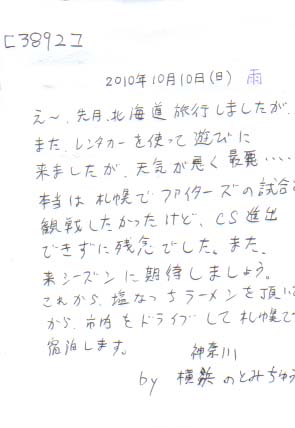 [3892]
2010年10月10日(日) 雨
え〜、先月、北海道旅行しましたが、
また、レンタカーを使って遊びに
来ましたが、天気が悪く最悪‥‥
本当は札幌でファイターズの試合を
観戦したかったけど、CS進出
できずに残念でした。また、
来シーズンに期待しましょう。
これから、塩なっちラーメンを頂いて
から、市内をドライブして札幌で
宿泊します。
神奈川
by 横浜のとみちゅう